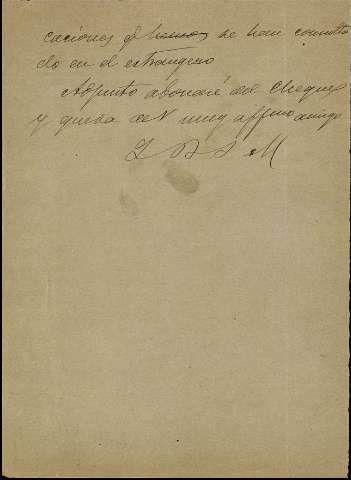 caciones q hemos se han consulta
do en el estrangero
Adjunto abonaré del cheque
y queda de V muy affmo amigo
L B S M